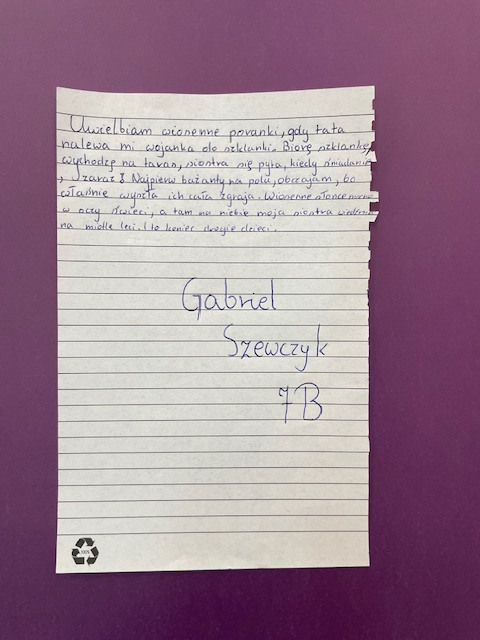 Uwielbiam wiosenne poranki, gdy tata
nalewa mi wojanka do szklanki. Biorę szklankę,
wychodzę na taras, siostra się pyta, kiedy śniadanie
, zaraz! Najpierw bażanty na polu, obczajam, bo
właśnie wyszła ich cała zgraja. Wiosenne słońce
w oczy świeci, a tam na niebie moja siostra
na miotle leci. I to koniec drogie dzieci.
Gabriel
Szewczyk
7B
100%